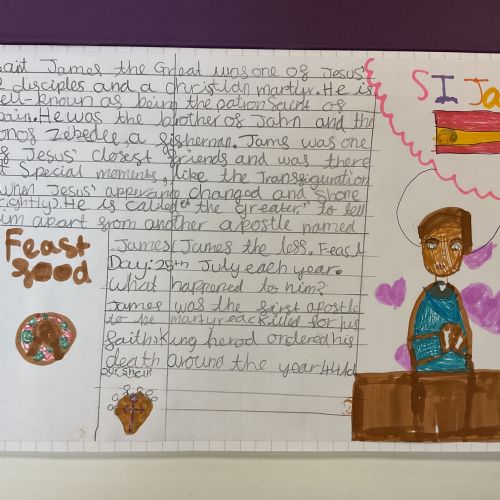 aint James the Great was one of Jesus'
disciples and a christian martyr. He is
ell-known as being the patron saint of
pain. He was the brother of John and the
son of Zebedee, a fisherman. Jams was one
of Jesus' closest friends and was there
at special moments, like the Transfiguration
when Jesus' apperane changed and shone
rightly. He is called "the greater" to tell
him apart from another apostle named
James/James the less. Feast
Day: 25th July each year.
What happened to him?
James was the first apostle
to be martyred killed for his
faith. King herod ordered his
death around the year 44Ad
Feast
food
our shell
St Ja